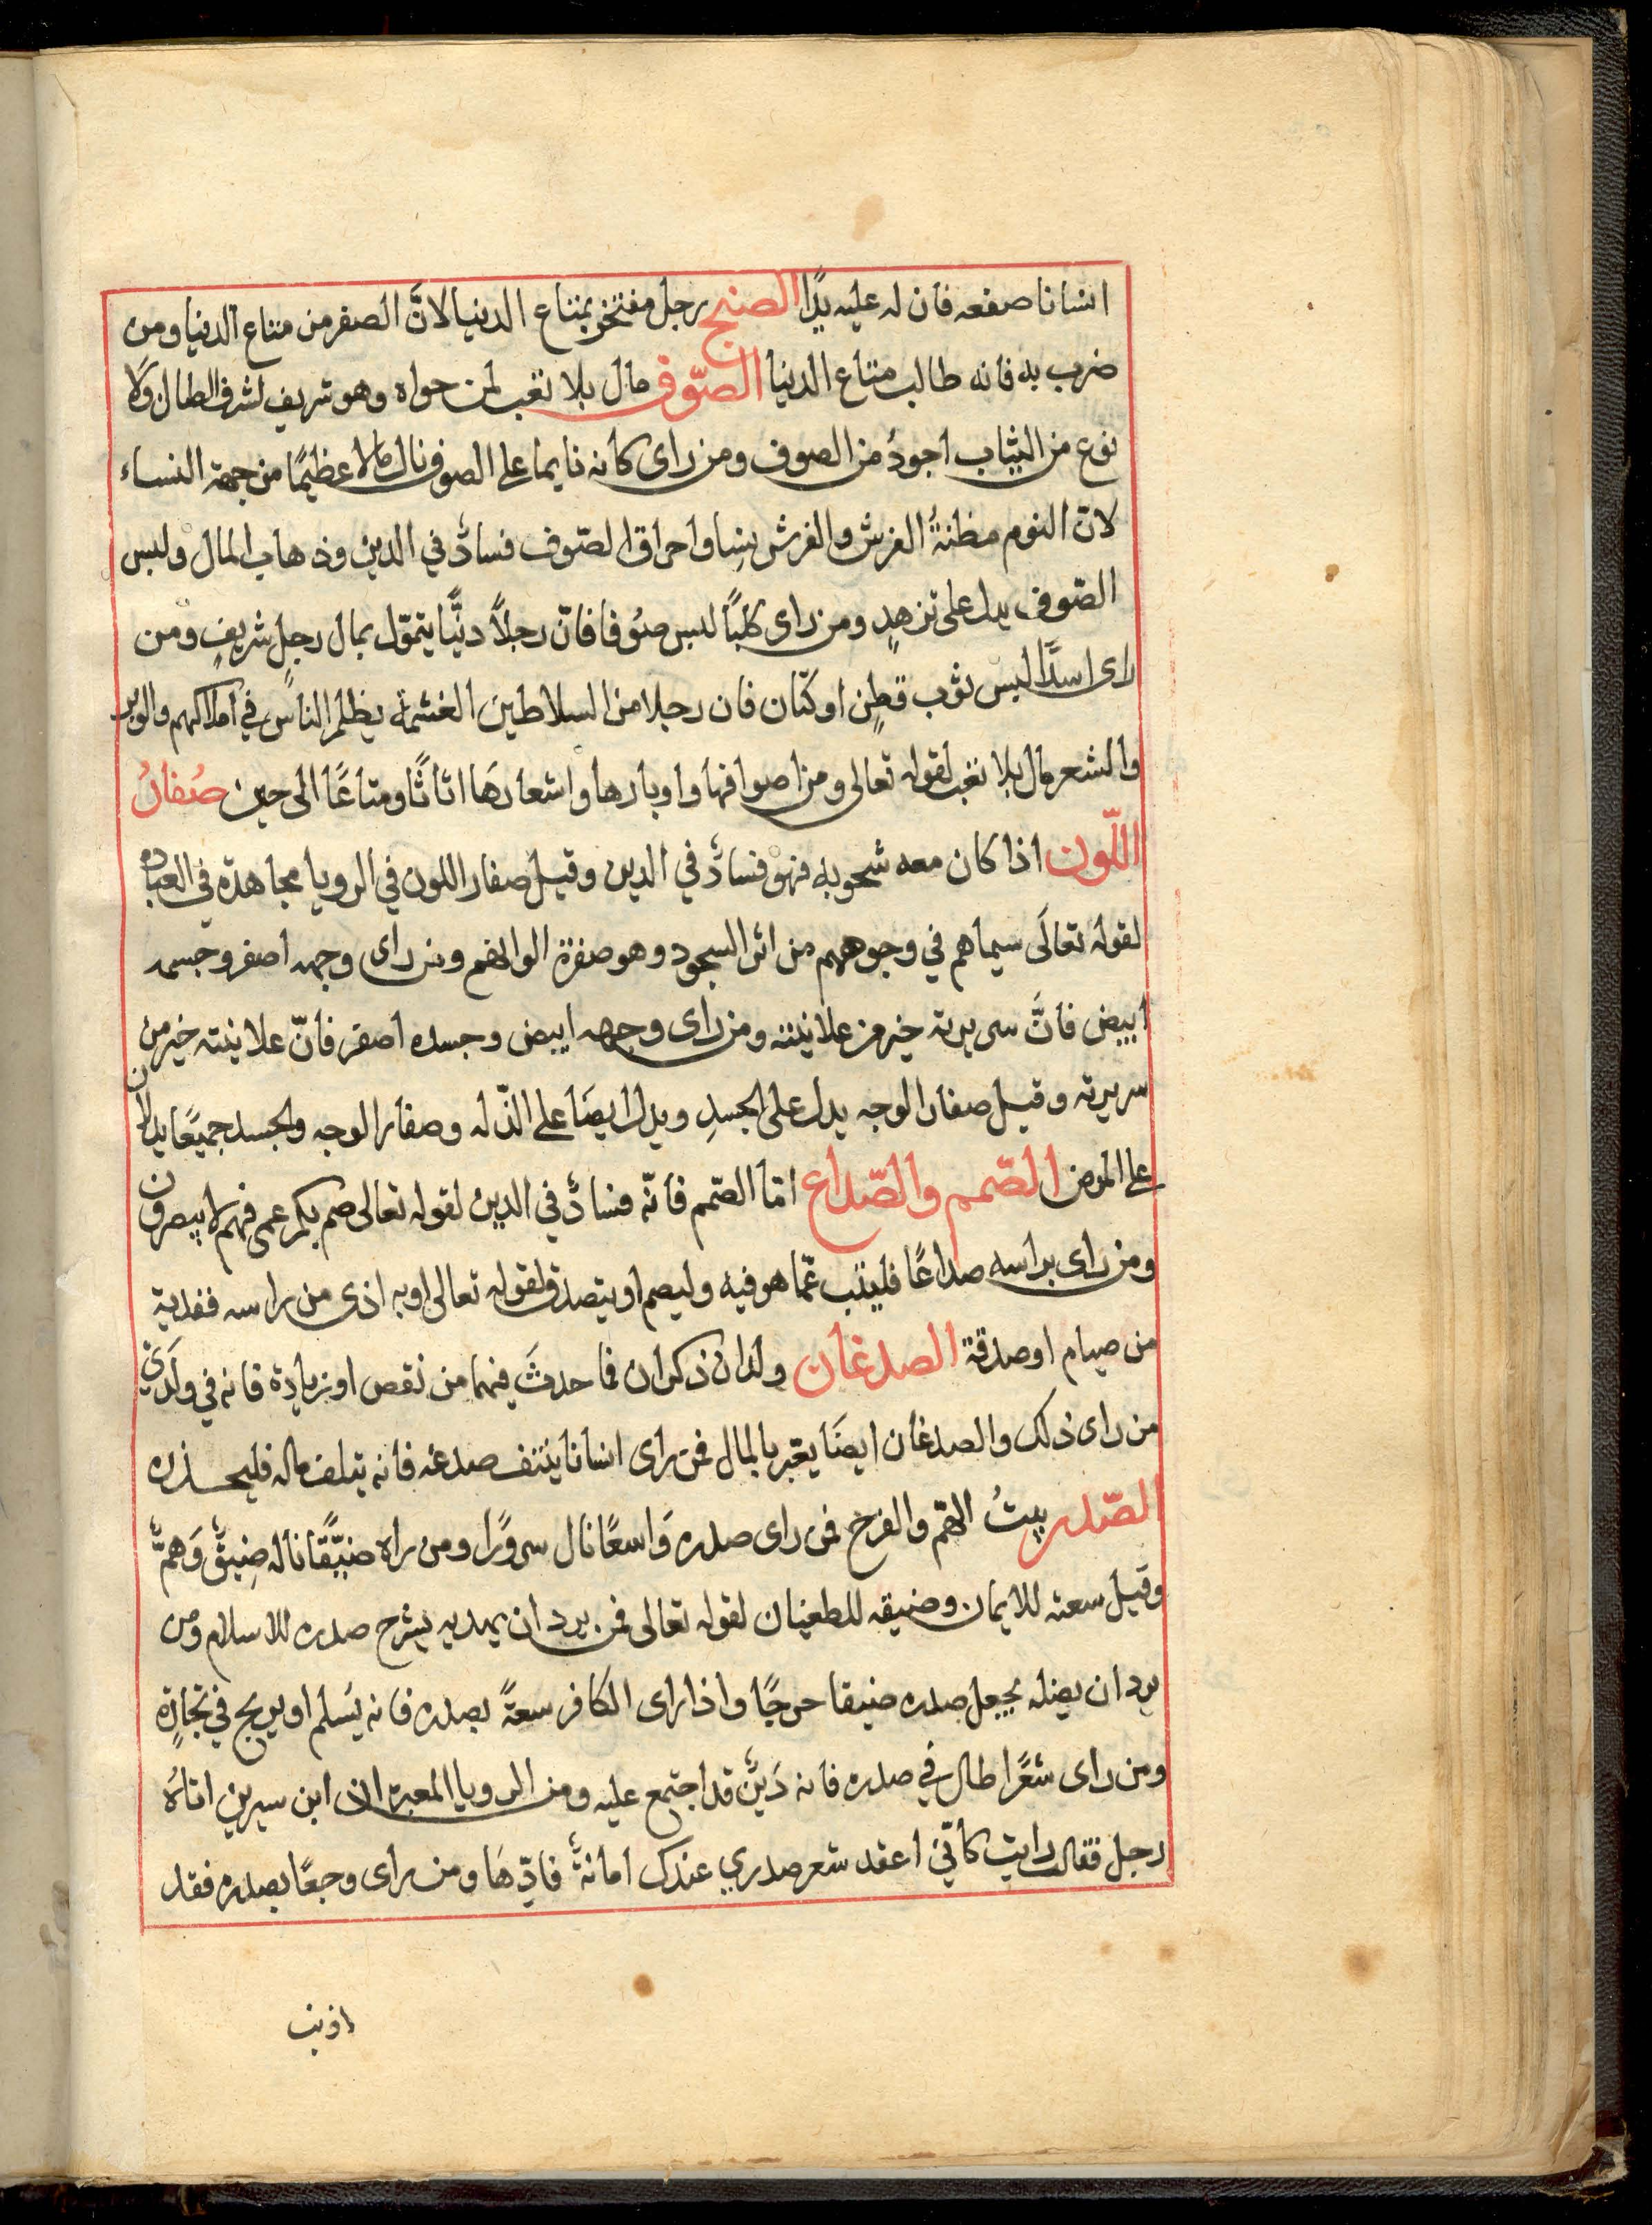 انسانا صفعه فان له عليه يدًا الصنج رجل مفتخر بمتاع الدنيا لانَّ الصفر من متاع الدنيا ومن
ضرب به فانه طالب متاع الدنيا الصّوف مال بلا تعب لمن حواه وهو شريف لشرف الطال ولا
نوع من الثياب اجودُ من الصوف ومن راى كانه نايما على الصوف نال مالا عظيمًا من جهة النساء
لانّ النوم مظنةُ الفرش والفرش نِسا واحراق الصّوف فسادٌ في الدين وذهاب المال ولبس
الصّوف يدل على تزهدٍ ومن راى كلبًا لبس صُوفا فانّ رجلاً دنيًّا يتموّل بمال رجلٍ شريفٍ ومن
راى اسدًا لبس ثوب قطنٍ او كتّان فان رجلا من السلاطين الغشمة يظلم الناس في املاكهم والوبر
والشعر مال بلا تعب لقوله تعالى ومن اصوافها واوبارها واشعارهَا اثاثًا ومتاعًا الى حين صُفارُ
اللّون اذا كان معه شحوبة فهو فسادٌ في الدين وقيل صفار اللون في الرويا مجاهدة في العباده
لقوله تعالَى سيماهم في وجوههم من اثر السجود وهو صفرة الوانهم ومن راى وجهه اصفر وجسمه
ابيض فانَّ سريرته خير من علانيته ومن راى وجهه ابيض وجسده اصفر فانّ علانيته خير من
سريرته وقيل صفار الوجه يدل على الحسدِ ويدل ايضَا على الذّله وصفار الوجه والجسد جميعًا يدلان
على المرض الصّمم والصّداع امّا الصّمم فانّه فسادٌ في الدين لقوله تعالى صم بكم عمى فهم لا يبصرون
ومن راى براسه صداعًا فليتب عمّا هو فيه وليصم او يتصدق لقوله تعالى او به اذى من راسه ففدية
من صيام او صدقة الصدغان ولدان ذكران فما حدثَ فيهما من نقص او زيادة فانه في ولدَي
من راى ذلك والصدغان ايضَا يعّبر بالمال فمن راى انسانا ينتف صدغه فانه يتلف ماله فليحذره
الصّدر بيتُ الهمّ والفرح فمن راى صدره وَاسعًا نال سرورًا ومن راه ضيّقًا ناله ضِيقٌ وَهمٌّ
وقيل سعته للايمان وضيقه للطغيان لقوله تعالى فمن يرد ان يهديه يشرح صدره للاسلام ومن
يرد ان يضله يجعل صدره ضيقا حرجًا واذا راى الكافر سعةً بصدره فانه يَسلم او يربح في تجارةٍ
ومن راى شعرًا طال في صدره فانه دَينٌ قد اجتمع عليه ومن الرويا المعبرة ان ابن سيرين اتاهُ
رجل فقال رايت كانّي اعقد شعر صدري عندك امانةٌ فادّهَا ومن راى وجعًا بصدره فقد
اذنب